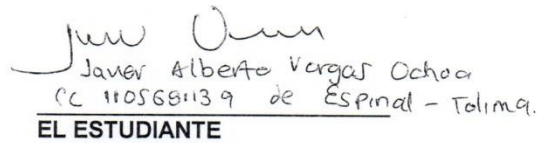 Javier Alberto Vargas Ochoa
CC 1105681139 de Espinal - Tolima.
EL ESTUDIANTE